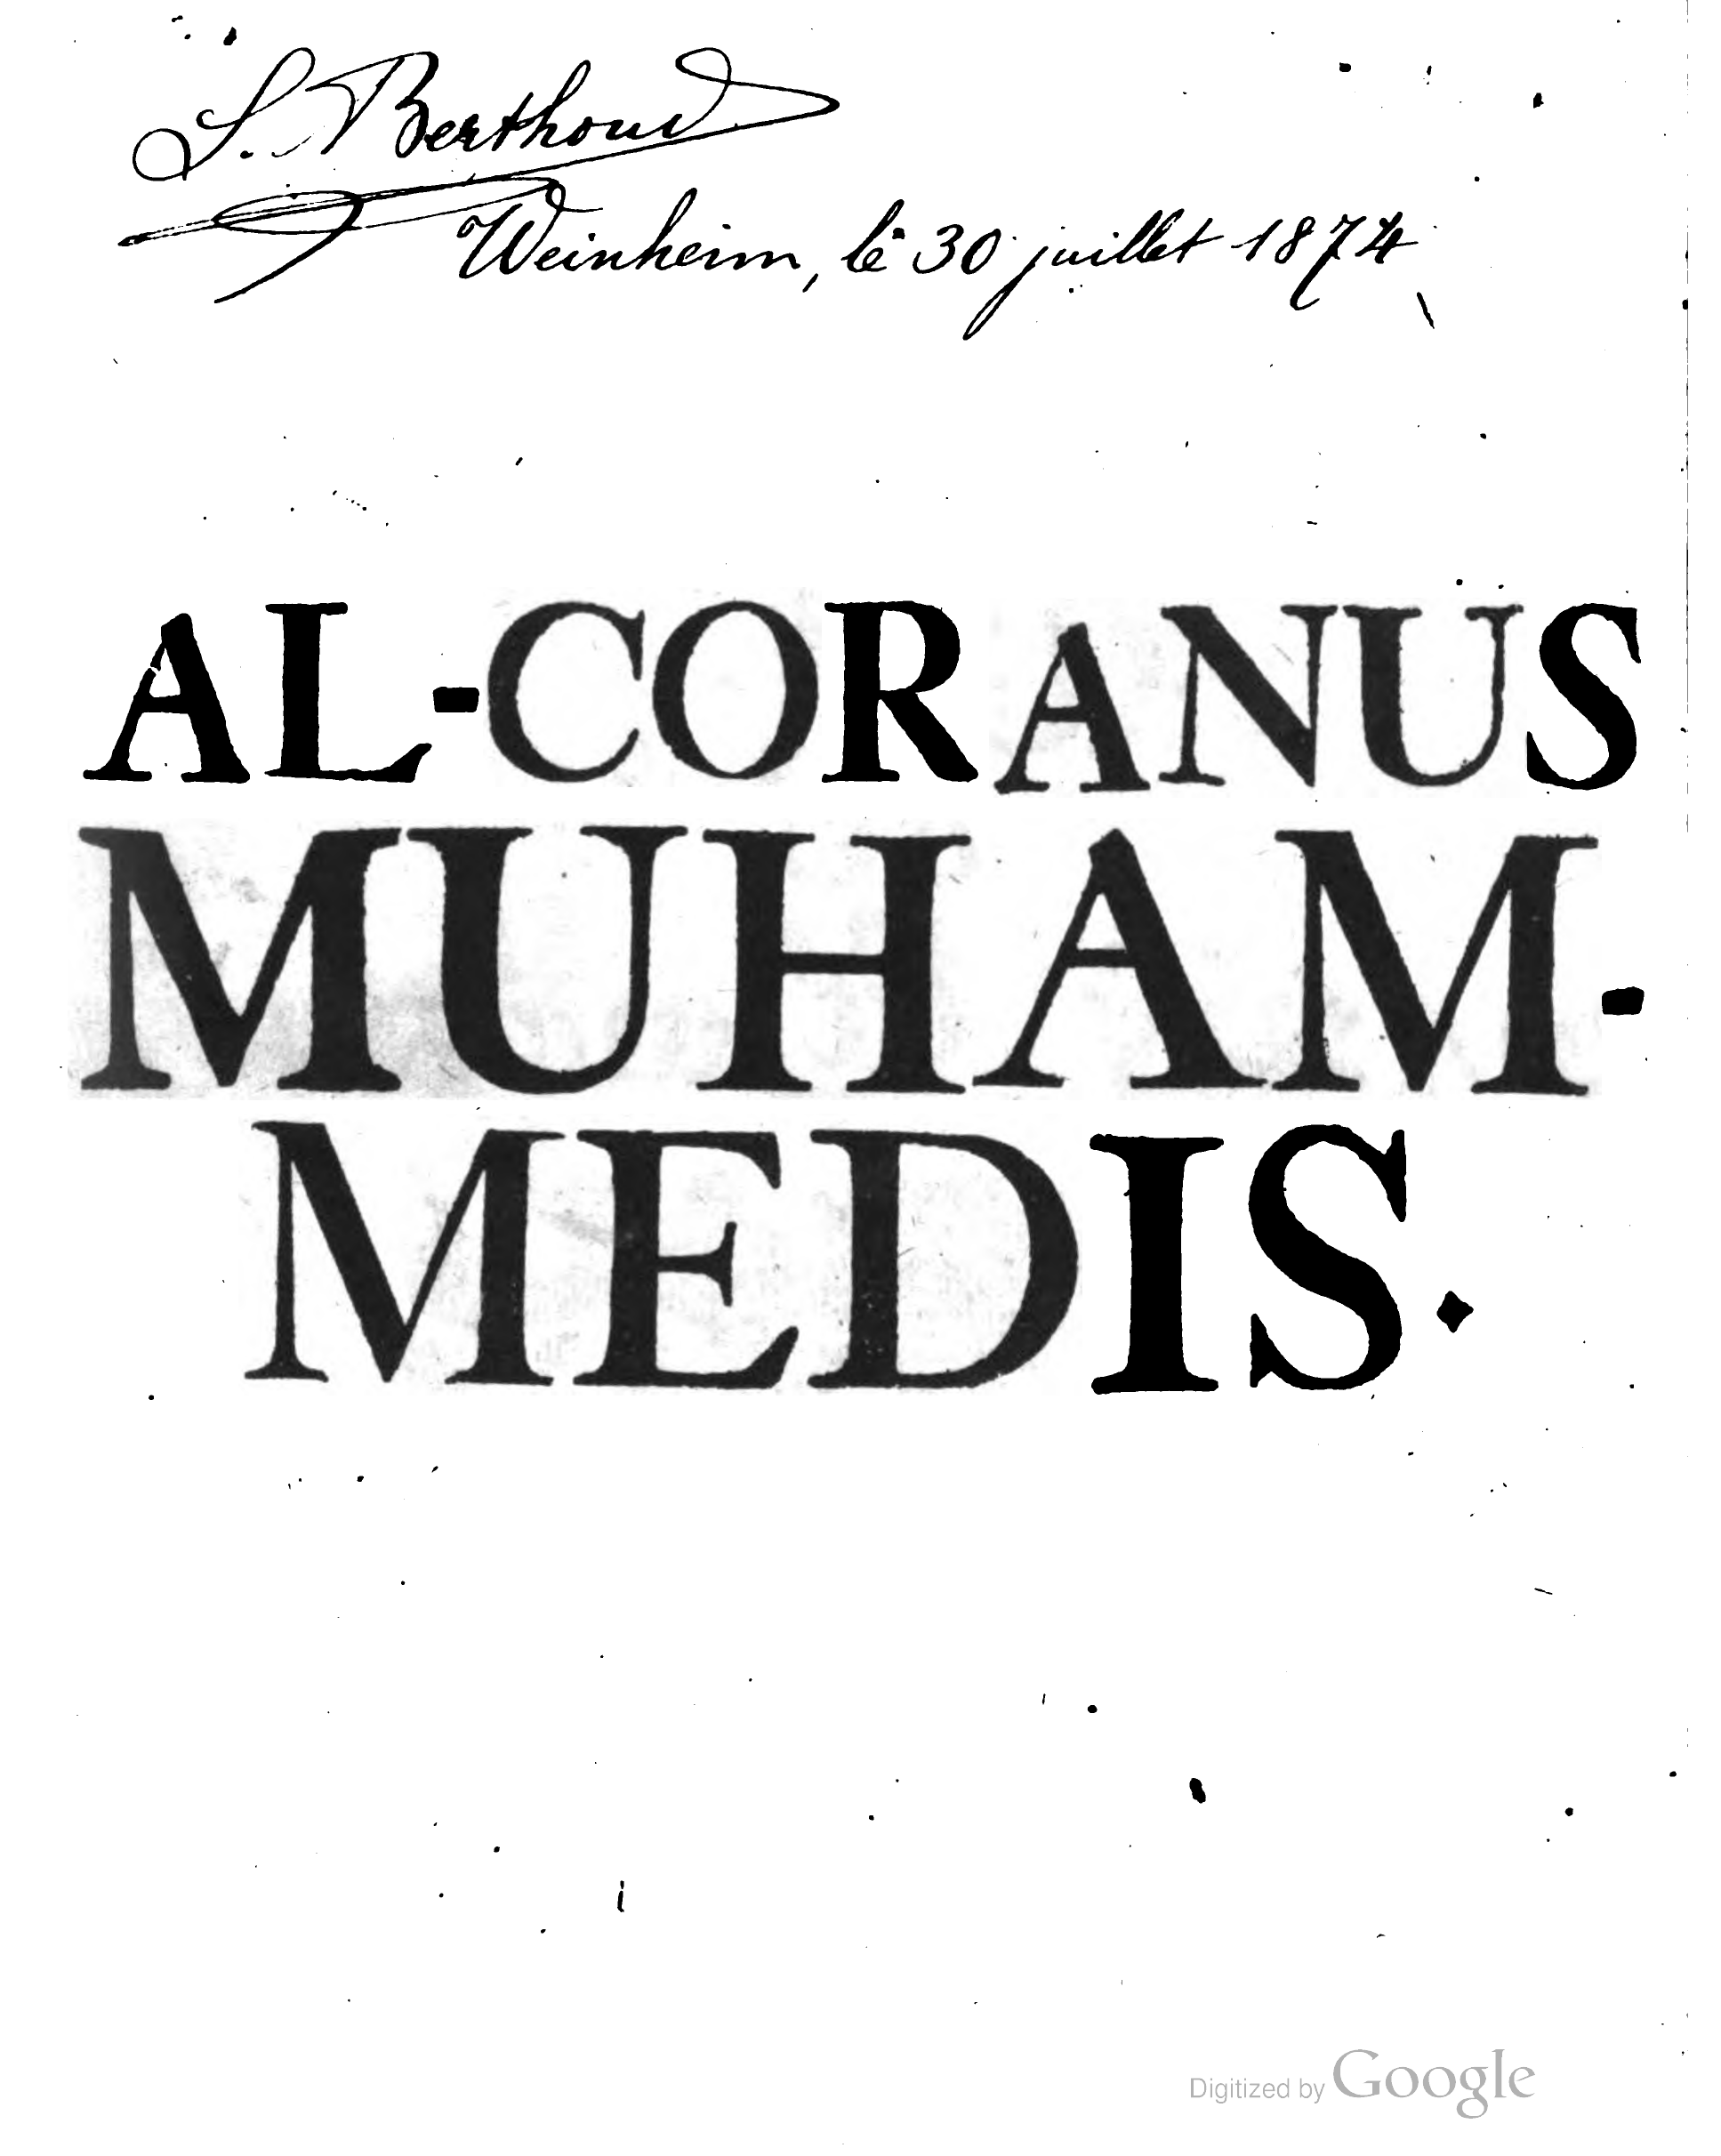 L. Berthoud
Weinheim, le 30 juillet 1874
AL-CORANUS
MUHAM-
MEDIS.
Digitized by Google